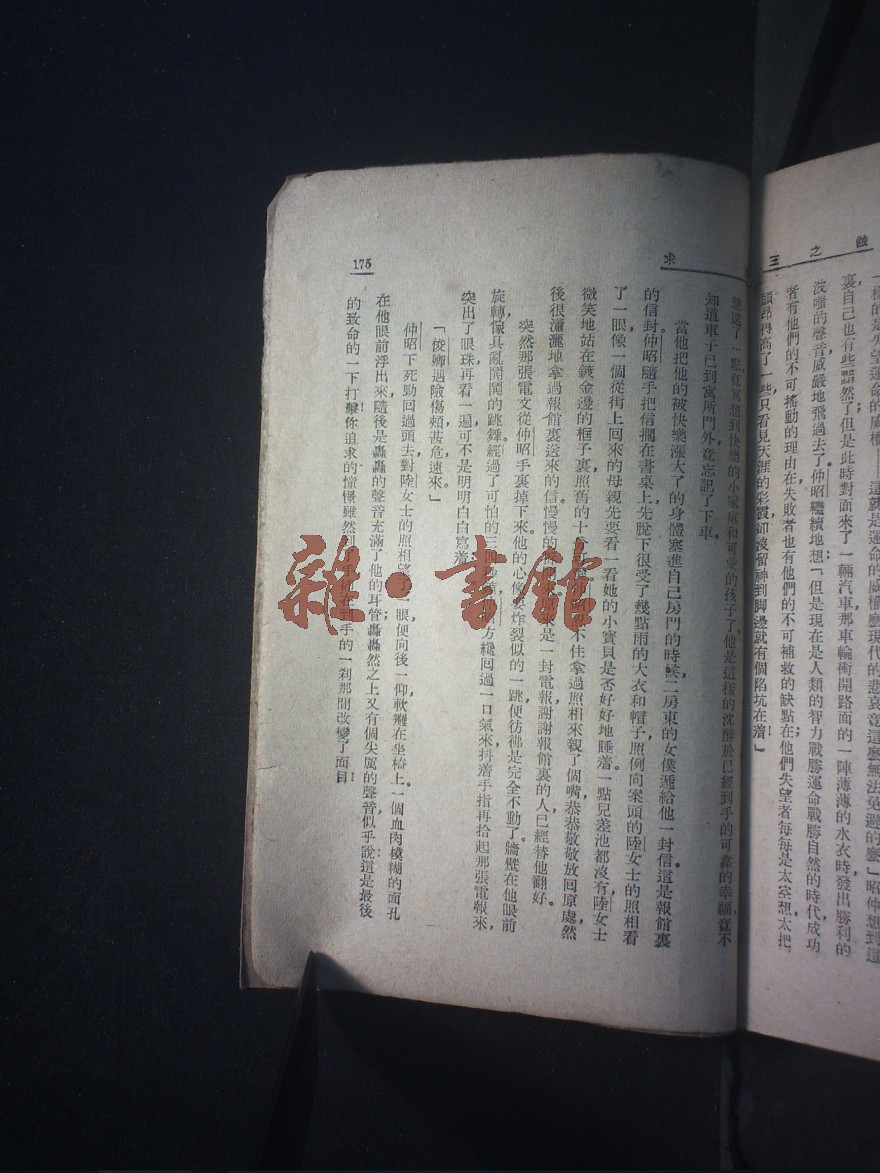 蝕之三
樣的是失望運命的威權這就是運命的威權麼現代的悲哀竟這麼無法免避的麼」昭仲想到這
裏自己也有些黯然了但是此時對面來了一輛汽車那車輪衝開路面的一陣薄薄的水衣時發出勝利的
波嗤的聲音威嚴地飛過去了仲昭繼續地想「但是現在是人類的智力戰勝運命戰勝自然的時代成功
者有他們的不可搖動的理由在失敗者也有他們的不可補救的缺點在他們失望者每每是太空想太把
頭昂得高了一些只看見天涯的彩霞卻沒留神到脚邊就有個陷坑在着」
求
想遠了一點竟冥想到快樂的小家庭和可愛的孩子了他是這樣的沈醉於已經到手的可靠的幸福竟不
知道車子已到寓所門外竟忘記了下車。
當他把他的被快樂漲大了的身體塞進自己房門的時候二房東的女僕遞給他一封信這是報館裏
的信封仲昭隨手把信擱在書桌上先脫下很受了幾點雨的大衣和帽子照例向案頭的陸女士的照相看
了一眼像一個從街上回來的母親先要看一看她的小寶貝是否好好地睡着一點兒差池都沒有陸女士
微笑地站在鍍金邊的框子裏照舊的十不住拿過照相來親了個嘴恭恭敬敬放回原處然
後很瀟灑地拿過報館裏送來的信慢慢的是一封電報謝謝報館裏的人已經替他翻好。
突然那張電文從仲昭手裏掉下來他的心像要炸裂似的一跳便彷彿是完全不動了牆壁在他眼前
旋轉傢具亂鬨鬨的跳舞經過了可怕的三方纔回過一口氣來抖着手指再拾起那張電報來，
突出了眼珠再看一遍可不是明明白白寫着
「俊卿遇險傷頰甚危速來」
仲昭下死勁回過頭去對陸女士的照相望了一眼便向後一仰軟癱在坐椅上。一個血肉模糊的面孔
在他眼前浮出來隨後是轟轟的聲音充滿了他的耳管轟轟然之上又有個尖厲的聲音似乎說這是最後
的致命的一下打擊你追求的憧憬雖然到手的一剎那間改變了面目！
175
雜·書館